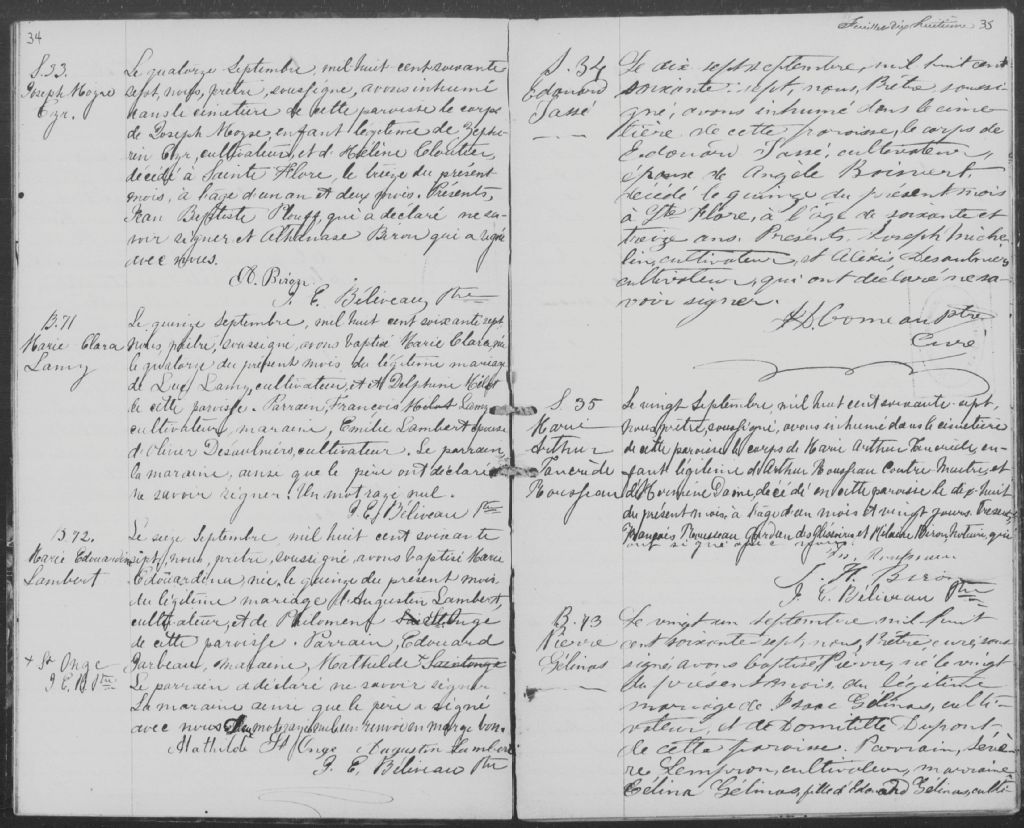 34
S. 33.
Joseph Moyse
Cyr.
Le quatorze Septembre, mil huit cent soixante
sept, nous, prêtre, soussigné, avons inhumé
dans le cimetière de cette paroisse le corps
de Joseph Moyse, enfant légitime de Zéphi-
rin Cyr, cultivateur, et d'Hélène Cloutier,
décédé à Sainte Flore, le treize du présent
mois, à l'âge d'un an et deux mois. Présents,
Jean Baptiste Plouff, qui a déclaré ne sa-
voir signer et Athanase Biron qui a signé
avec nous.
A. Biron
J. E. Béliveau, Ptre
B. 71
Marie Clara
Lamy
Le quinze Septembre, mil huit cent soixante sept
nous, prêtre, soussigné, avons baptisé Marie Clara, née
le quatorze du présent mois du légitime mariage
de Luc Lamy, cultivateur, et d'Delphine Milot
de cette paroisse. Parrain, François Milot Lamy,
cultivateur, maraine, Emilie Lambert épouse
d'Oliver Désaulniers, cultivateur. Le parrain
la maraine, ainsi que le père ont déclaré
ne savoir signer. Un mot rayé nul.
J. E. Béliveau Ptre
B. 72.
Marie Edouardina
Lambert
Le seize Septembre mil huit cent soixante
sept, nous, prêtre, soussigné avons baptisé Marie
Edouardina née le quinze du présent mois
du légitime mariage d'Augustin Lambert,
cultivateur, et de Philomène St Onge
de cette paroisse. Parrain, Edouard
Garbeau, maraine, Mathilde Saintonge
+ St Onge
J. E. B. Ptre
Le parrain a déclaré ne savoir signer
La maraine ainsi que le père a signé
avec nous. Deux mots rayés nuls un renvoi en marge bon.
Mathilde St Onge, Augustin Lambert
J. E. Béliveau Ptre
Feuillet dix huitième 35
S. 34
Edouard
Tassé
Le dix sept septembre, mil huit cent
soixante-sept, nous, Prêtre, soussi-
gné, avons inhumé dans le cime-
tière de cette paroisse, le corps de
Edouard Tassé, cultivateur,
époux de Angèle Boisvert
décédé le quinze du présent mois
à Ste Flore, à l'âge de soixante et
treize ans. Présents Joseph Miche-
lin, cultivateur, et Alexis Desaulniers
cultivateur, qui ont déclaré ne sa-
voir signer.
Comeau ptre
Curé
S. 35
Marie
Arthur
Tancrède
Rousseau
Le vingt Septembre mil huit cent soixante-sept,
nous, prêtre, soussigné, avons inhumé dans le cimetière
de cette paroisse le corps de Marie Arthur Tancrède, en-
fant légitime d'Arthur Rousseau Contre Maitre, et
d'Hermine Daine, décédé en cette paroisse le dix-huit
du présent mois, à l'âge d'un mois et vingt jours. Présents
François Rousseau Gardien des Glissoires et Hilaire Biron, Notaire, qui
ont signé avec nous.
Frs. Rousseau
J. H. Biron
J. E. Béliveau Ptre
B. 73
Pierre
Gélinas
Le vingt un septembre mil huit
cent soixante-sept, nous, Prêtre, curé, sous
signé, avons baptisé Pierre, né le vingt
du présent mois, du légitime
mariage de Isaac Gélinas, culti-
vateur, et de Domitille Dupont,
de cette paroisse. Parrain, Sévè-
re Lampron, cultivateur, marraine
Célina Gélinas, fille d'Edouard Gélinas, culti-